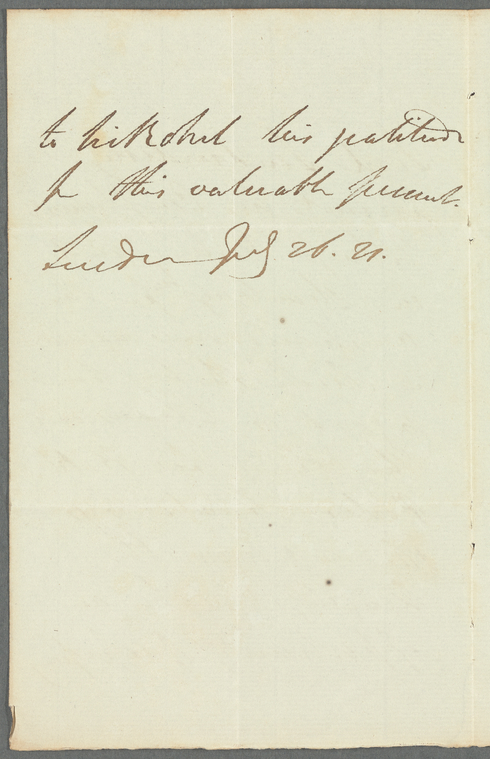 to Mr Kohul his gratitude
for this valuable present.
London July 26. 21.